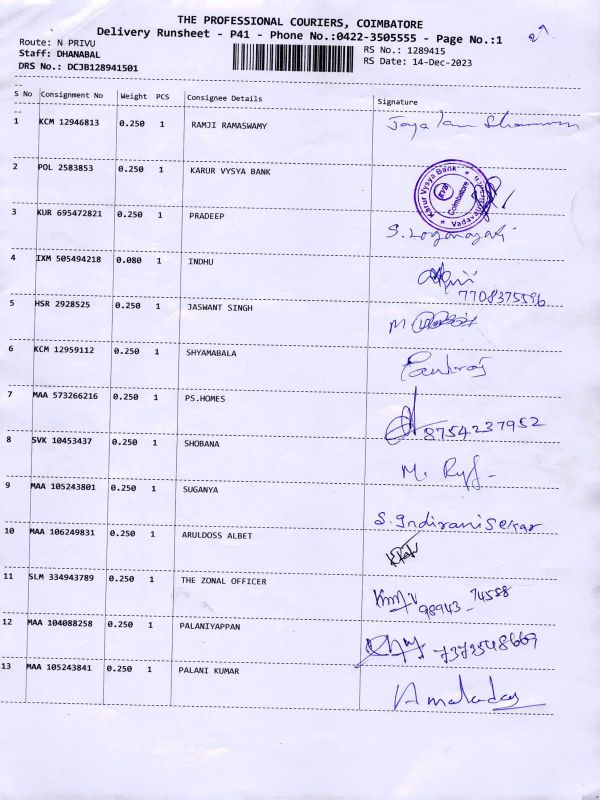 THE PROFESSIONAL COURIERS, COIMBATORE
Delivery Runsheet - P41 - Phone No.:0422-3505555 - Page No.:1
Route: N PRIVU
RS No.: 1289415
Staff: DHANABAL
RS Date: 14-Dec-2023
DRS No.: DCJB128941501
S No Consignment No Weight PCS Consignee Details Signature
1 KCM 12946813 0.250 1 RAMJI RAMASWAMY
2 POL 2583853 0.250 1 KARUR VYSYA BANK
Karur Vysya Bank Coimbatore
3 KUR 695472821 0.250 1 PRADEEP
4 IXM 505494218 0.080 1 INDHU
7708375596
5 HSR 2928525 0.250 1 JASWANT SINGH M
6 KCM 12959112 0.250 1 SHYAMABALA
7 MAA 573266216 0.250 1 PS.HOMES 8754237952
8 SVK 10453437 0.250 1 SHOBANA M.
9 MAA 105243801 0.250 1 SUGANYA S. Indirani Sekar
10 MAA 106249831 0.250 1 ARULDOSS ALBET
11 SLM 334943789 0.250 1 THE ZONAL OFFICER 98943-74588
12 MAA 104088258 0.250 1 PALANIYAPPAN 7373548669
13 MAA 105243841 0.250 1 PALANI KUMAR